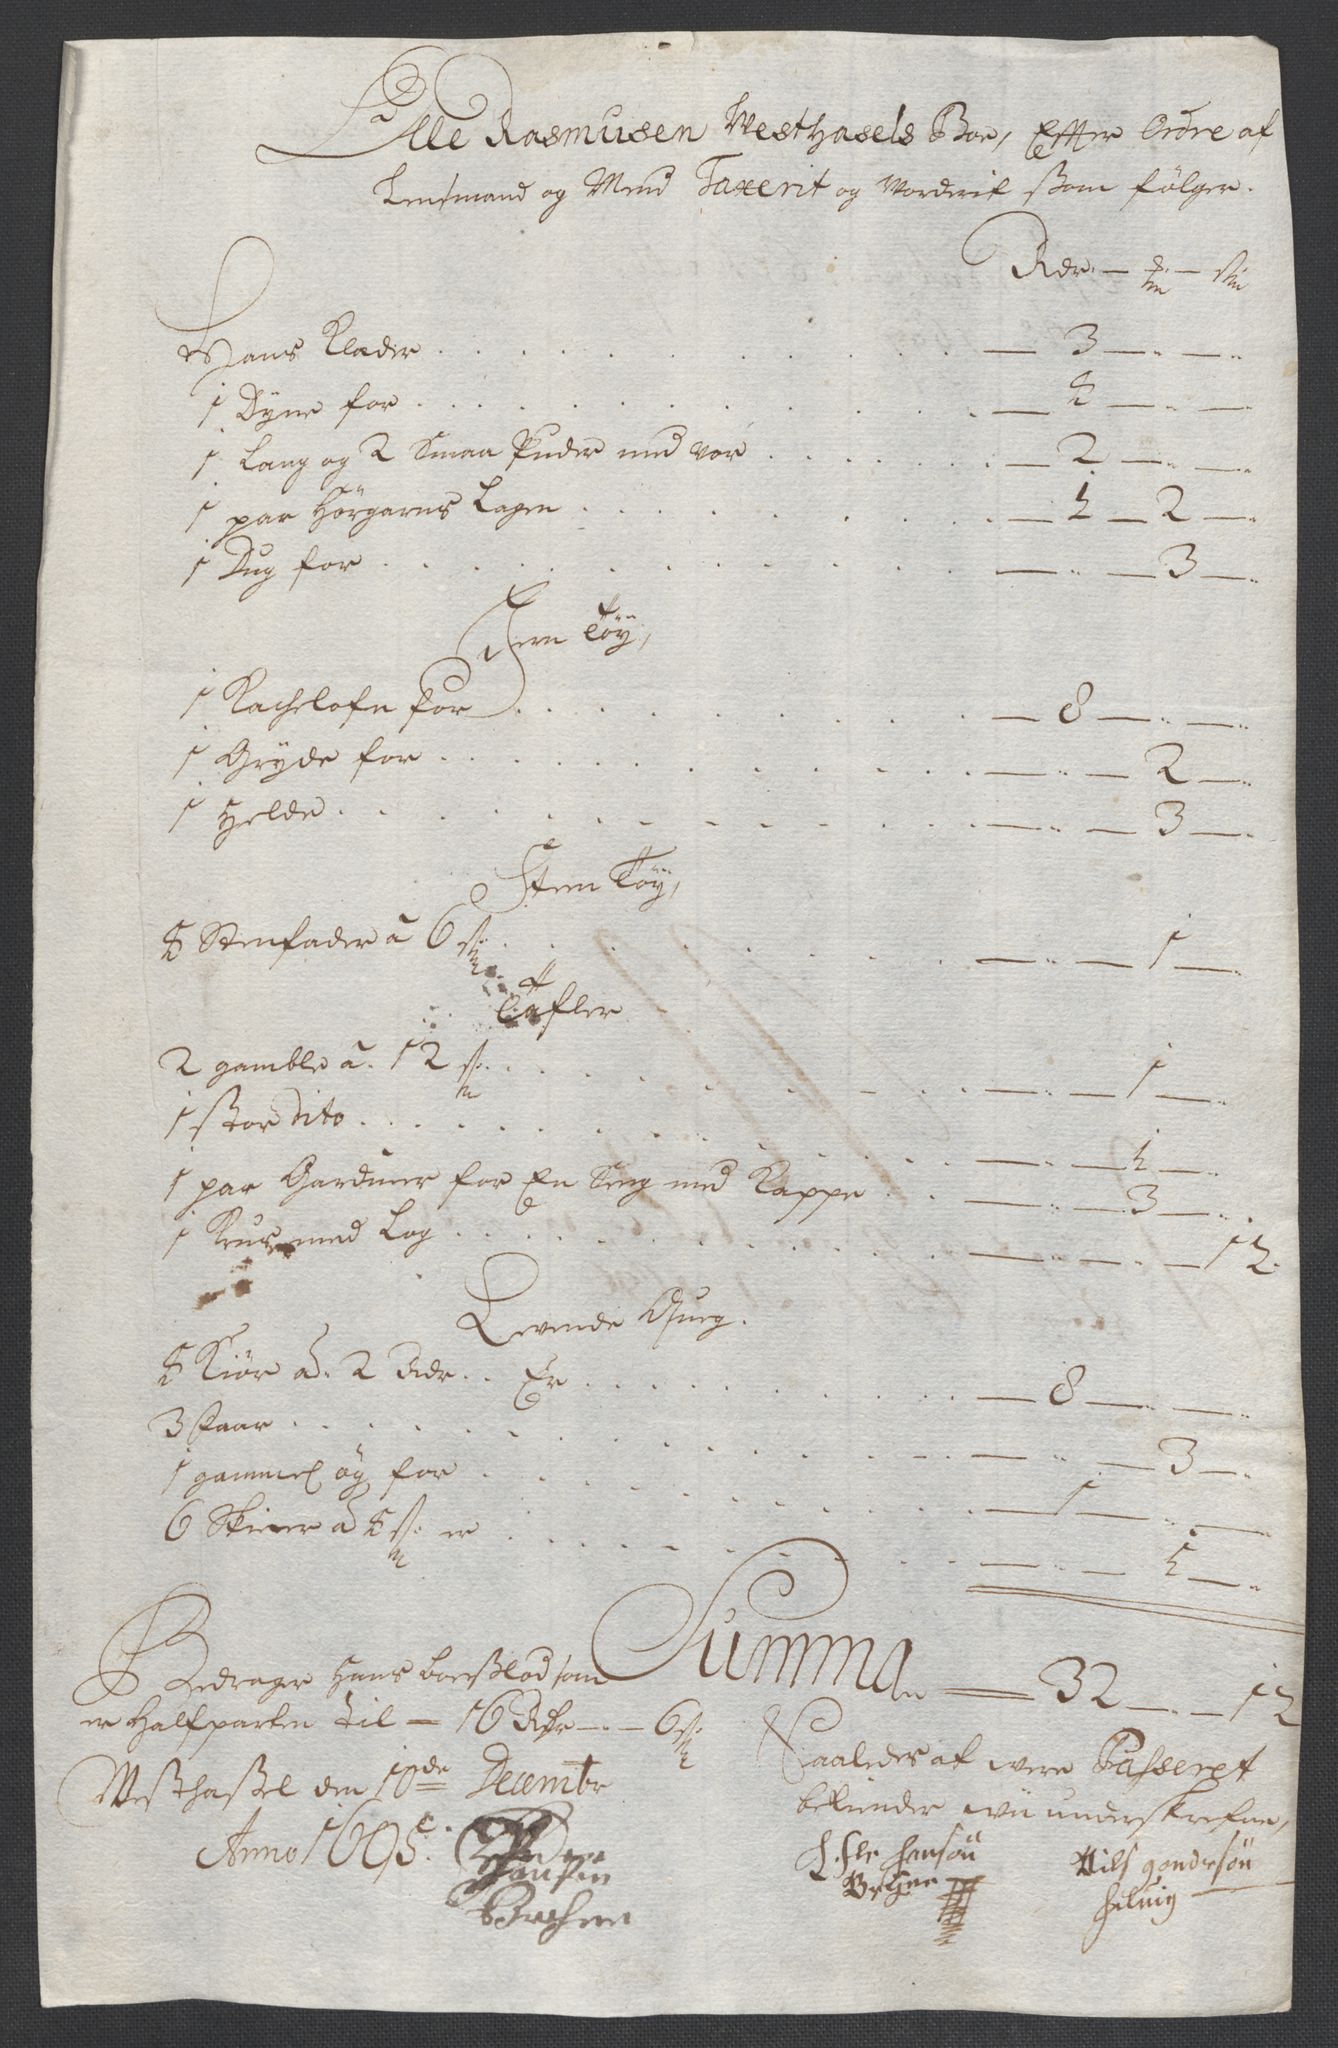 Elle Rasmusen Westhasels Boe, Effter Ordre af
Lensmand og Mend Taxerit og Vorderit som følger.
Rdr. — ort — sk
Hans Klæder . . . — 3 — „ — „
1 Dÿne for . . . — 4 — „ — „
1 Lang og 2 Smaa Puder med vor . . . — 2 — „ — „
1 par Hörgarns Lagen . . . — 1 — 2 — „
1 Dug for . . . — „ — 3 — „
Jern Töÿ,
1 Kachelofn for . . . — 8 — „ — „
1 Grÿde for . . . — „ — 2 — „
1 Helde . . . — „ — 3 — „
Steen Töÿ,
4 Stenfader à 6 sk . . . — „ — 1 — „
Tafler
2 gamble à 12 sk . . . — „ — 1 — „
1 stor dito . . . — „ — 1 — „
1 par Gardiner for En Seng med Kappe . . — „ — 3 — „
1 Krus med Log . . . — „ — „ — 12
Levende Qveg.
4 Kiör à 2 Rdr . . Er . . . — 8 — „ — „
3 Faar . . . — „ — 3 — „
1 gammel öÿ for . . . — 1 — „ — „
6 Skieer à 4 sk er . . . — „ — 1 — „
Summa — 32 — „ — 12
Bedrager Hans boeslod som
er Halfparten til — 16 Rdr — „ — 6 sk
Westhassel den 10de Decembr
Anno 1695.
Saaledes at were Passeret
bekiender wii underskrefne,
Hansön
Nils gondersön